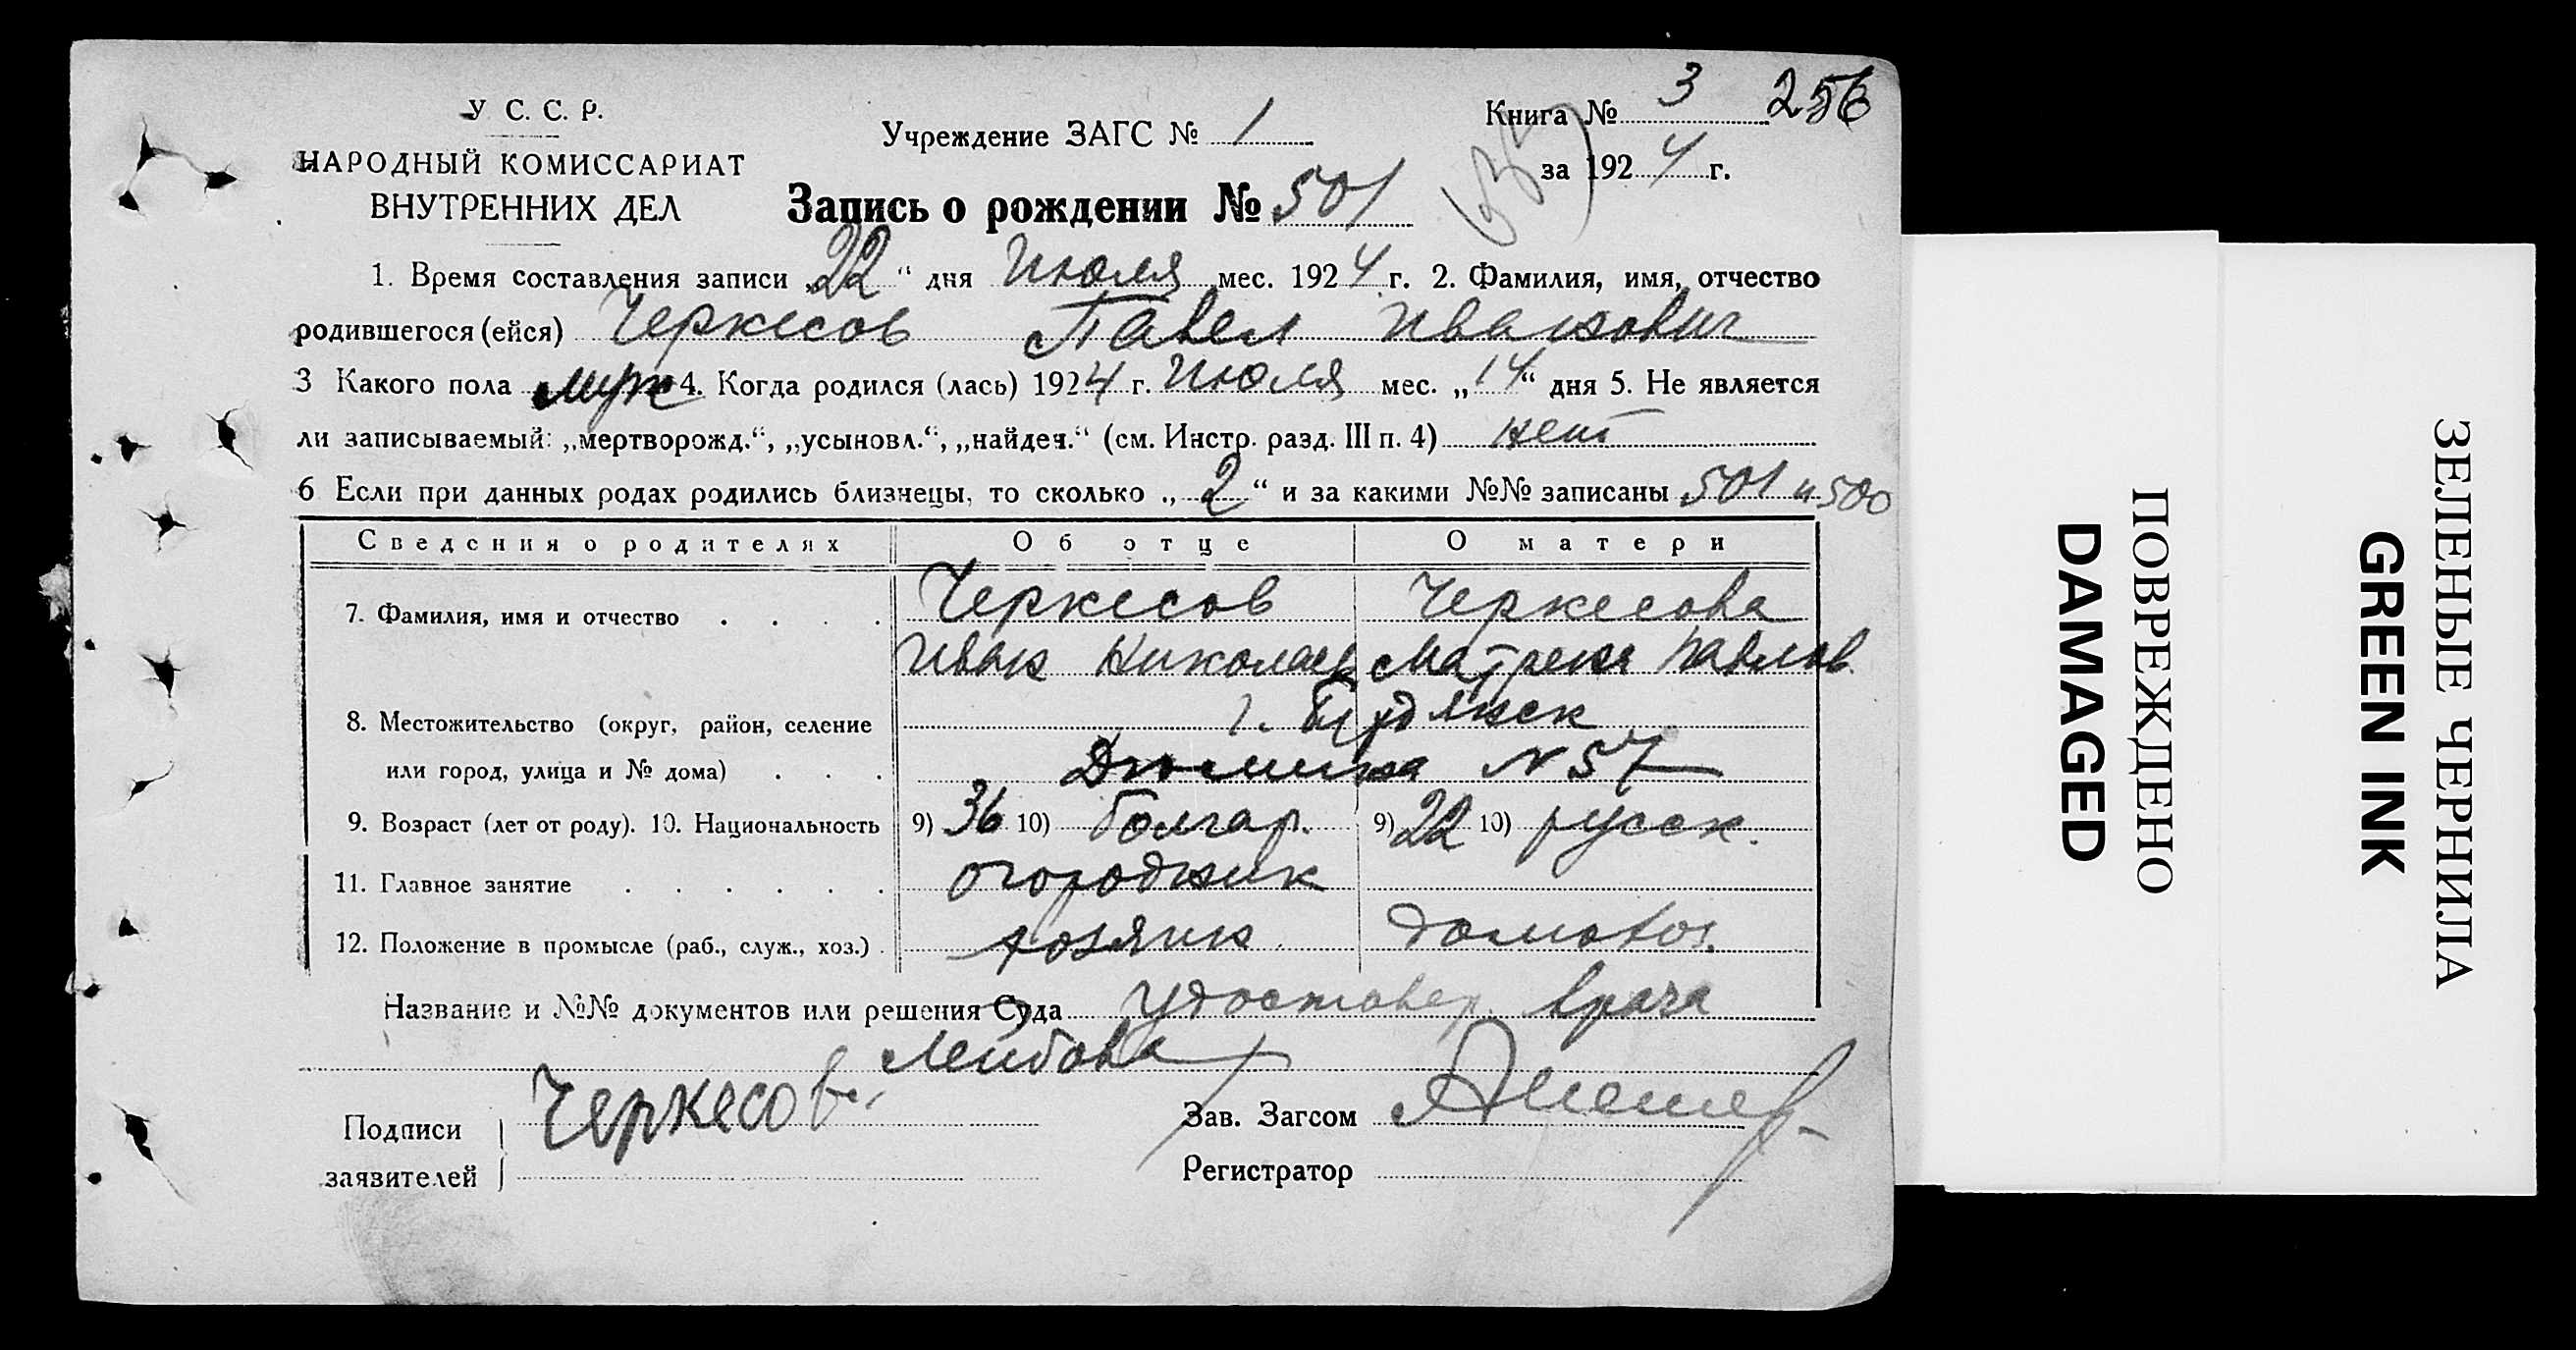 У С. С. Р.
НАРОДНЫЙ КОМИССАРИАТ
ВНУТРЕННИХ ДЕЛ
Учреждение ЗАГС № 1
Книга № 3
за 1924 г.
Запись о рождении № 501
1. Время составления записи „22“ дня Июля мес. 1924 г. 2. Фамилия, имя, отчество
родившегося (ейся) Черкесов Павел Иванович
3 Какого пола муж 4. Когда родился (лась) 1924 г. Июля мес. „14“ дня 5. Не является
ли записываемый: „мертворожд.“, „усыновл.“, „найден.“ (см. Инстр. разд. III п. 4) нет
6 Если при данных родах родились близнецы, то сколько „2“ и за какими №№ записаны 501 и 500
Сведения о родителях Об отце О матери
7. Фамилия, имя и отчество . . . . Черкесов Черкесова
Иван Николаев Матрена Павлов.
8. Местожительство (округ, район, селение г. Бердянск
или город, улица и № дома) . . . Дюмина N 57
9. Возраст (лет от роду). 10. Национальность 9) 36 10) болгар. 9) 22 10) русск.
11. Главное занятие . . . . . . огородник
12. Положение в промысле (раб., служ., хоз.) . хозяин домохоз.
Название и №№ документов или решения Суда удостовер. врача
Подписи Черкесов Зав. Загсом
заявителей Регистратор
ПОВРЕЖДЕНО
DAMAGED
ЗЕЛЕНЫЕ ЧЕРНИЛА
GREEN INK